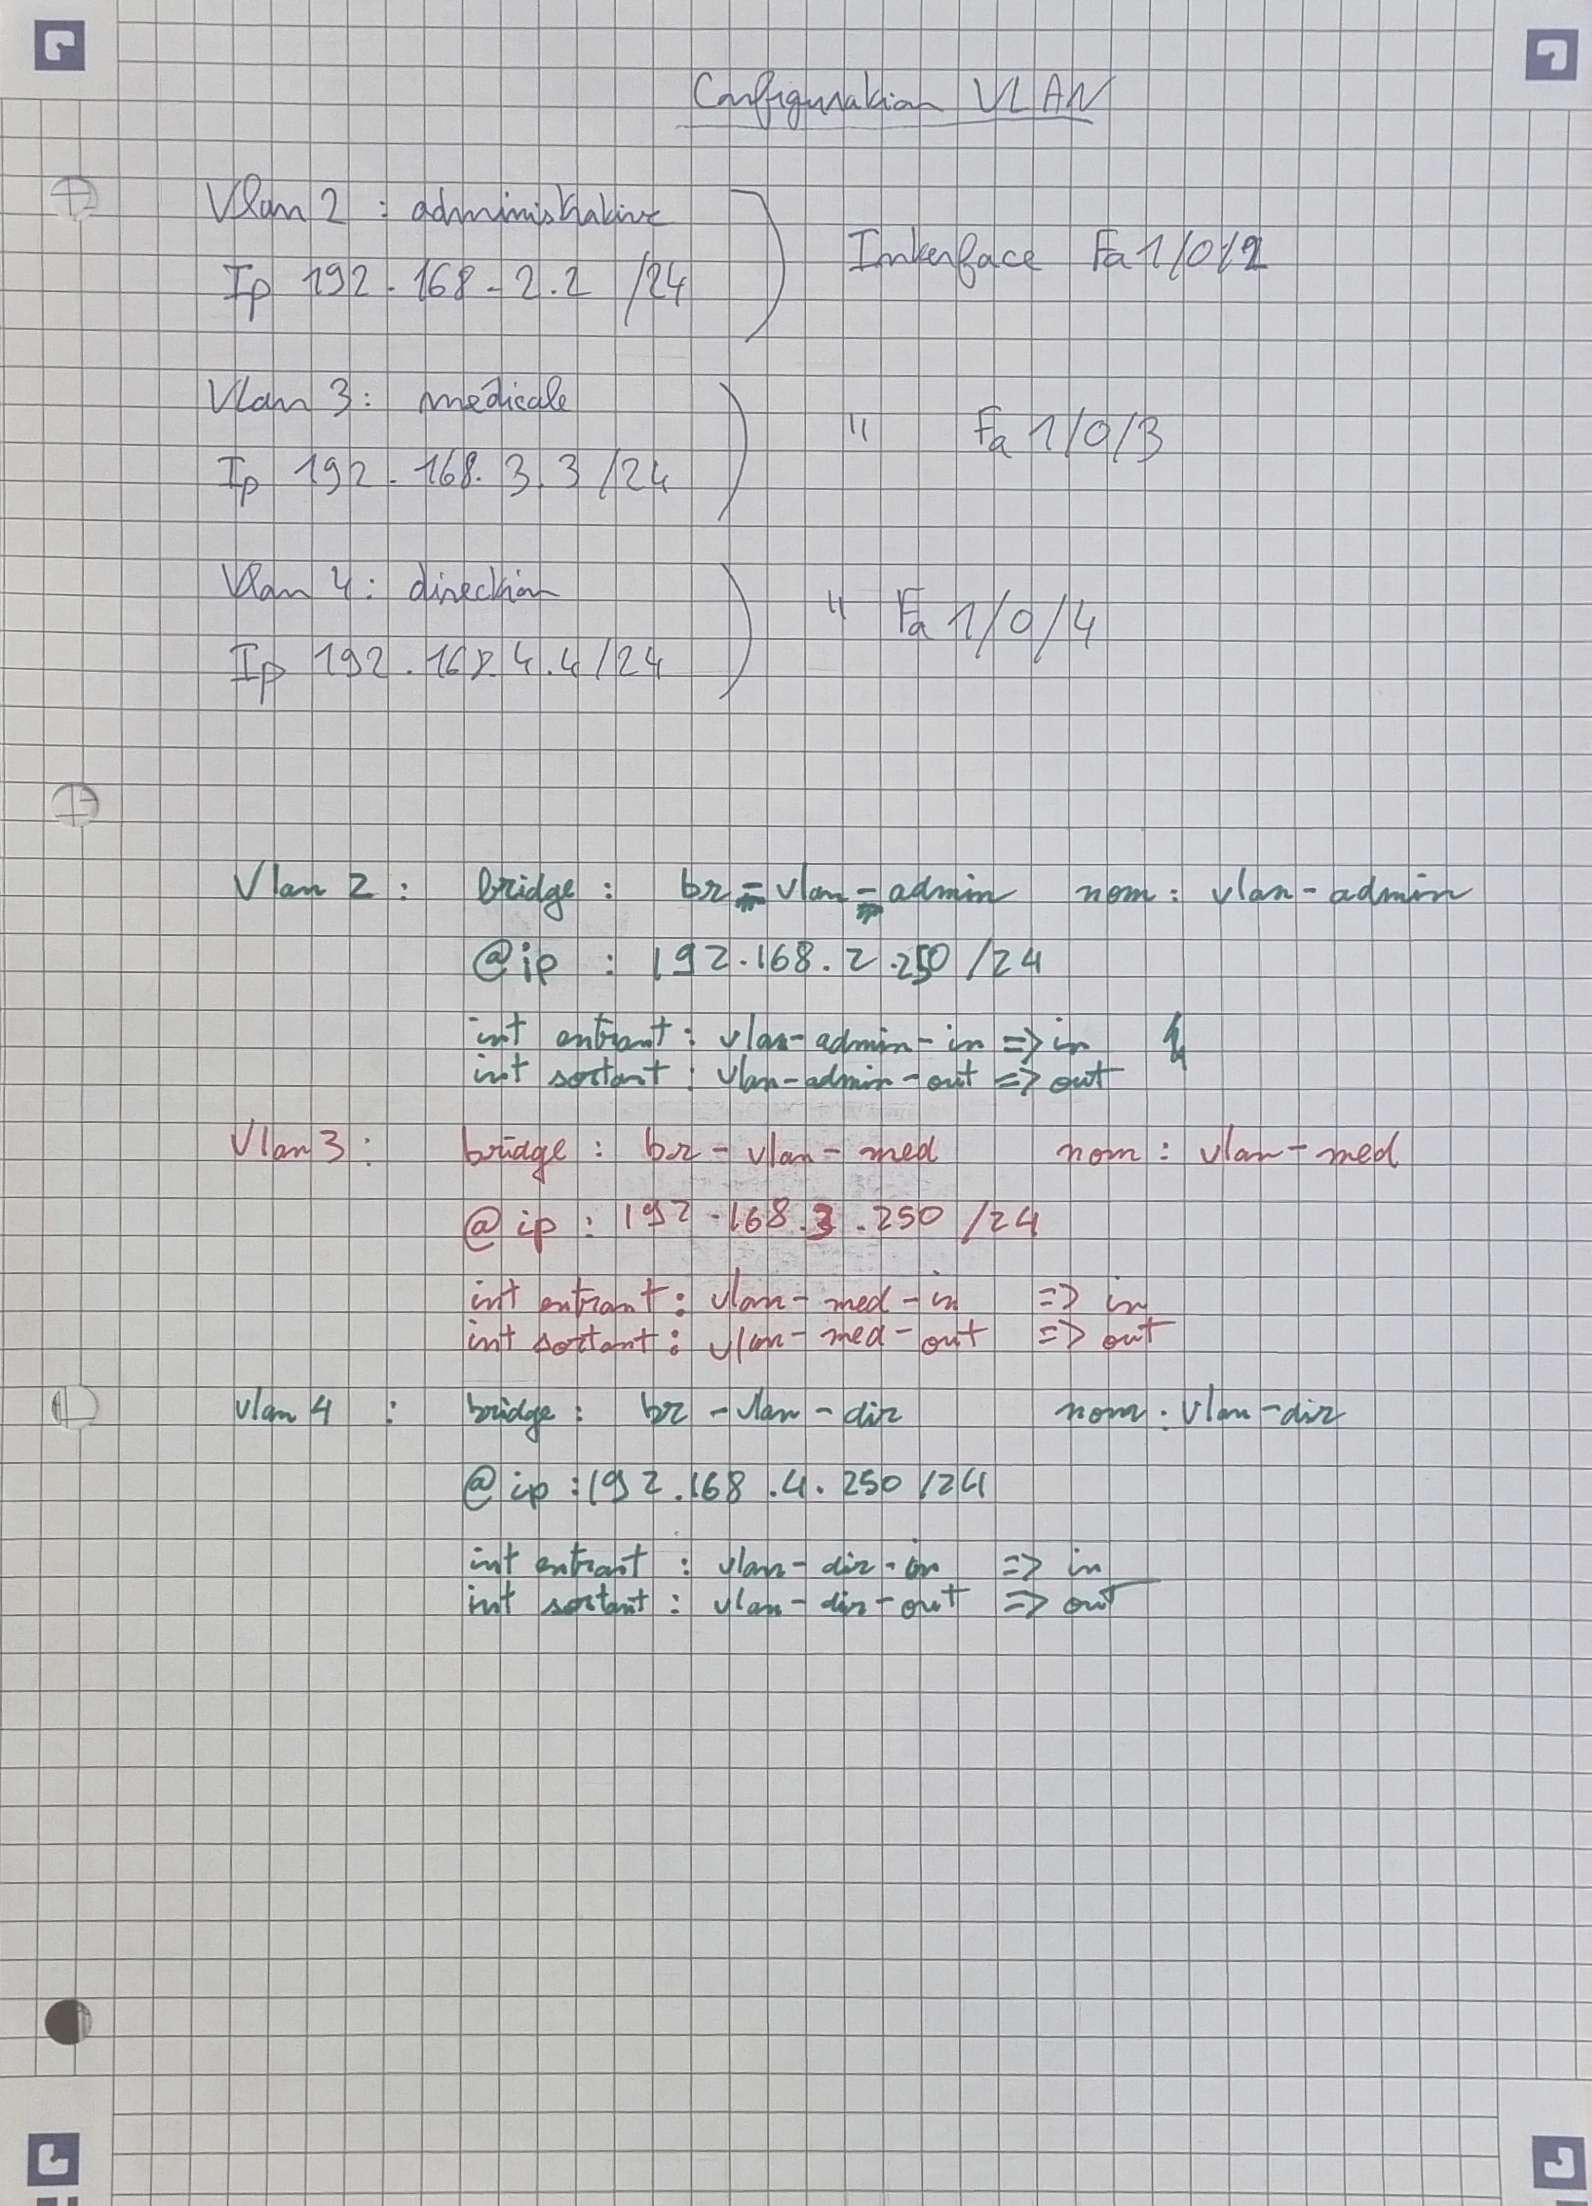 Configuration VLAN
Vlan 2 : administrative
Ip 192.168.2.2 /24
Interface Fa 1/0/2
Vlan 3 : médicale
Ip 192.168.3.3 /24
" Fa 1/0/3
Vlan 4 : direction
Ip 192.168.4.4 /24
" Fa 1/0/4
Vlan 2 : bridge : br-vlan-admin nom : vlan-admin
@ip : 192.168.2.250 /24
int entrant : vlan-admin-in => in
int sortant : vlan-admin-out => out
Vlan 3 : bridge : br-vlan-med nom : vlan-med
@ip : 192.168.3.250 /24
int entrant : vlan-med-in => in
int sortant : vlan-med-out => out
vlan 4 : bridge : br-vlan-dir nom : vlan-dir
@ip : 192.168.4.250 /24
int entrant : vlan-dir-in => in
int sortant : vlan-dir-out => out